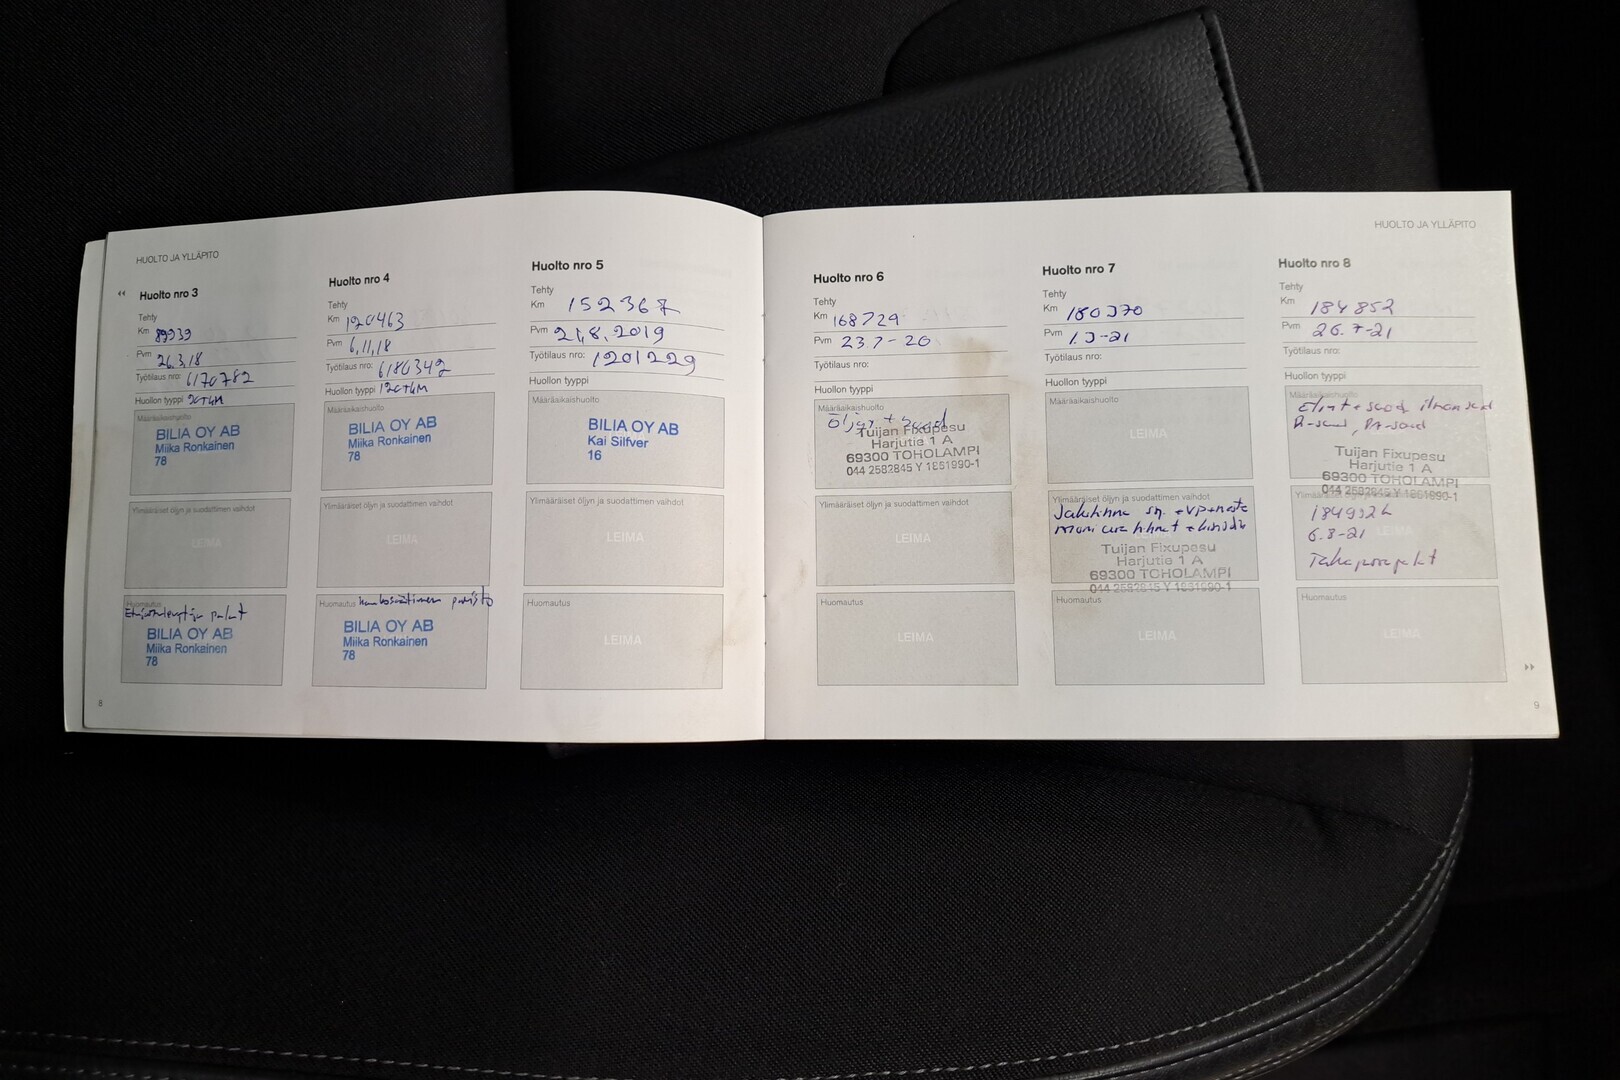 HUOLTO JA YLLÄPITO
Huolto nro 3
Tehty
Km 89939
Pvm 26.3.18
Työtilaus nro: 6170782
Huollon tyyppi
Määräaikaishuolto
BILIA OY AB
Miika Ronkainen
78
Ylimääräiset öljyn ja suodattimen vaihdot
LEIMA
Huomautus
BILIA OY AB
Miika Ronkainen
78
8
Huolto nro 4
Tehty
Km 120463
Pvm 6.11.18
Työtilaus nro: 6180342
Huollon tyyppi
Määräaikaishuolto
BILIA OY AB
Miika Ronkainen
78
Ylimääräiset öljyn ja suodattimen vaihdot
LEIMA
Huomautus
BILIA OY AB
Miika Ronkainen
78
Huolto nro 5
Tehty
Km 152367
Pvm 21.8.2019
Työtilaus nro: 1201229
Huollon tyyppi
Määräaikaishuolto
BILIA OY AB
Kai Silfver
16
Ylimääräiset öljyn ja suodattimen vaihdot
LEIMA
Huomautus
LEIMA
HUOLTO JA YLLÄPITO
Huolto nro 6
Tehty
Km 168729
Pvm 23 7-20
Työtilaus nro:
Huollon tyyppi
Määräaikaishuolto
Öljyt + suod
Tuijan Fixupesu
Harjutie 1 A
69300 TOHOLAMPI
044 2582845 Y 1861990-1
Ylimääräiset öljyn ja suodattimen vaihdot
LEIMA
Huomautus
LEIMA
Huolto nro 7
Tehty
Km
Pvm
Työtilaus nro:
Huollon tyyppi
Määräaikaishuolto
LEIMA
Ylimääräiset öljyn ja suodattimen vaihdot
Tuijan Fixupesu
Harjutie 1 A
69300 TOHOLAMPI
044 2582845 Y 1861990-1
Huomautus
LEIMA
Huolto nro 8
Tehty
Km 184852
Pvm 26.7-21
Työtilaus nro:
Huollon tyyppi
Määräaikaishuolto
Tuijan Fixupesu
Harjutie 1 A
69300 TOHOLAMPI
044 2582845 Y 1861990-1
6.8-21
Huomautus
LEIMA
9